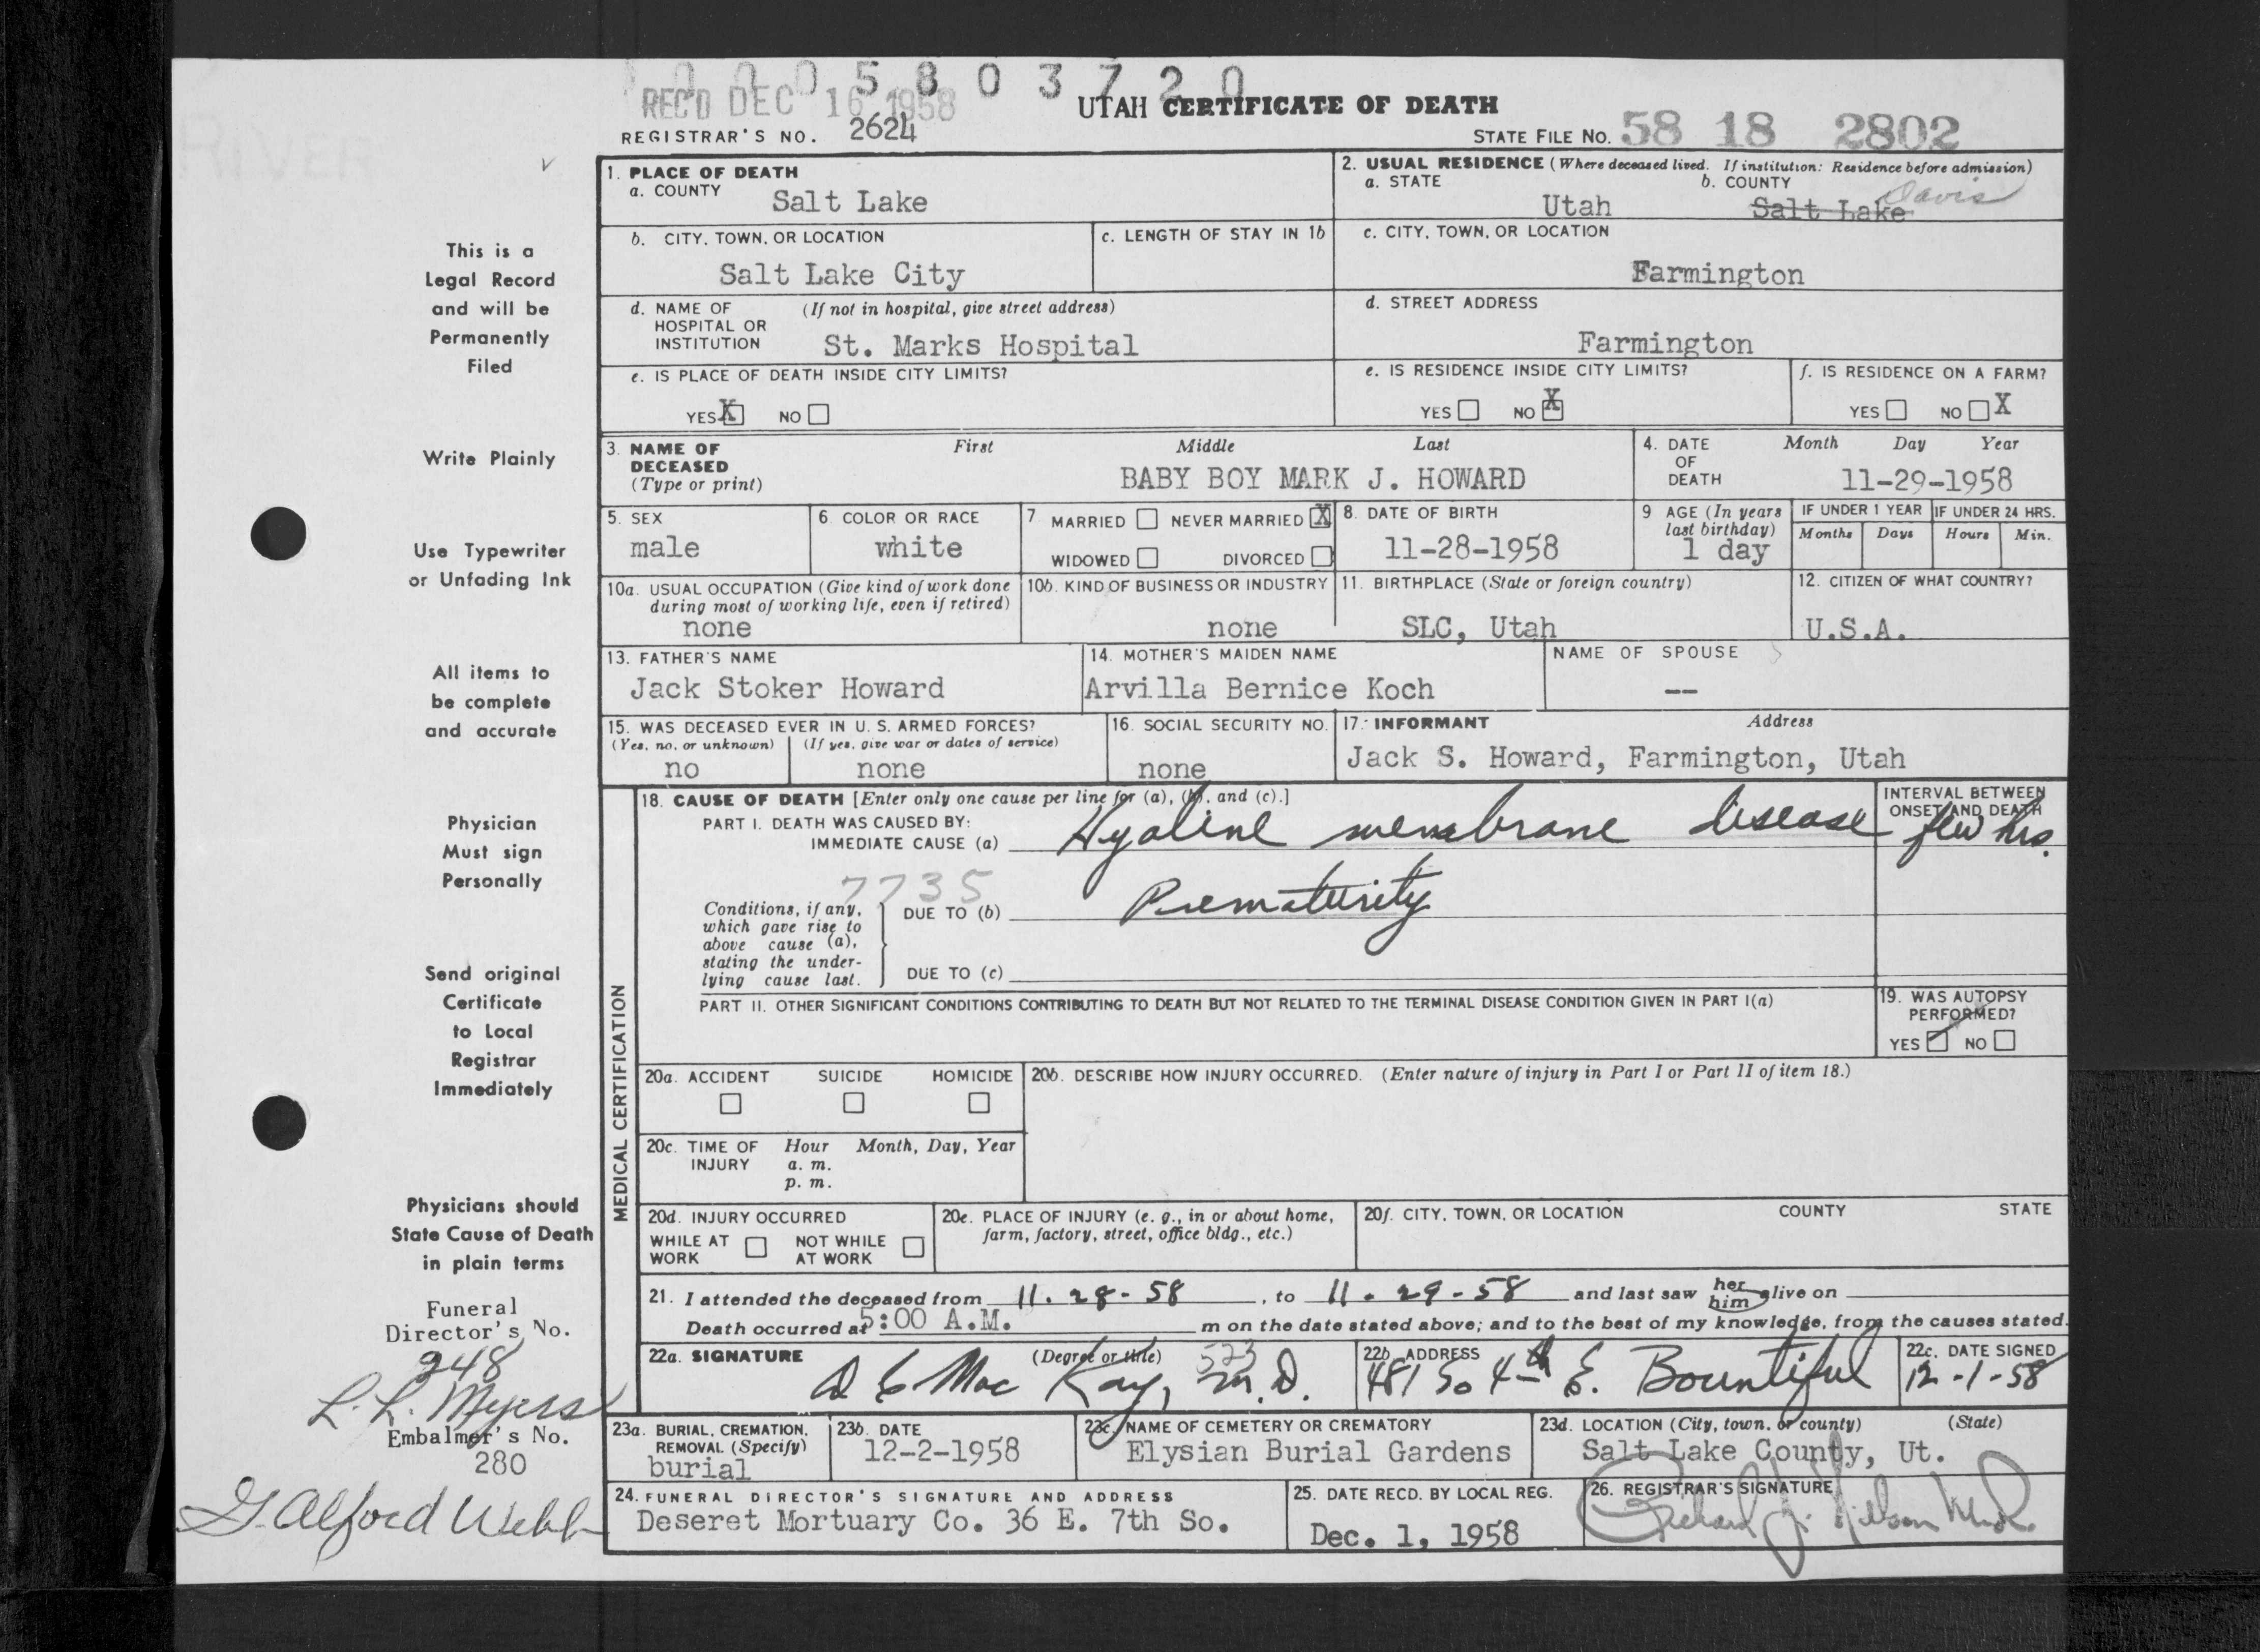 0 0 0 5 8 0 3 7 2 0
REC'D DEC 16 1958
UTAH CERTIFICATE OF DEATH
REGISTRAR'S NO. 2624
STATE FILE NO. 58 18 2802
RIVER
This is a
Legal Record
and will be
Permanently
Filed
Write Plainly
Use Typewriter
or Unfading Ink
All items to
be complete
and accurate
Physician
Must sign
Personally
Send original
Certificate
to Local
Registrar
Immediately
Physicians should
State Cause of Death
in plain terms
Funeral
Director's No.
248
L. L. Myers
Embalmer's No.
280
G. Alford Webb
1. PLACE OF DEATH
a. COUNTY
Salt Lake
2. USUAL RESIDENCE (Where deceased lived. If institution: Residence before admission)
a. STATE b. COUNTY
Davis
Utah Salt Lake
b. CITY, TOWN, OR LOCATION
Salt Lake City
c. LENGTH OF STAY IN 1b
c. CITY, TOWN, OR LOCATION
Farmington
d. NAME OF (If not in hospital, give street address)
HOSPITAL OR
INSTITUTION St. Marks Hospital
d. STREET ADDRESS
Farmington
e. IS PLACE OF DEATH INSIDE CITY LIMITS?
YES X NO
e. IS RESIDENCE INSIDE CITY LIMITS?
YES NO X
f. IS RESIDENCE ON A FARM?
YES NO X
3. NAME OF First Middle Last
DECEASED
(Type or print)
BABY BOY MARK J. HOWARD
4. DATE Month Day Year
OF
DEATH 11-29-1958
5. SEX
male
6. COLOR OR RACE
white
7. MARRIED NEVER MARRIED X
WIDOWED DIVORCED
8. DATE OF BIRTH
11-28-1958
9. AGE (In years
last birthday)
1 day
IF UNDER 1 YEAR
Months Days
IF UNDER 24 HRS.
Hours Min.
10a. USUAL OCCUPATION (Give kind of work done
during most of working life, even if retired)
none
10b. KIND OF BUSINESS OR INDUSTRY
none
11. BIRTHPLACE (State or foreign country)
SLC, Utah
12. CITIZEN OF WHAT COUNTRY?
U.S.A.
13. FATHER'S NAME
Jack Stoker Howard
14. MOTHER'S MAIDEN NAME
Arvilla Bernice Koch
NAME OF SPOUSE
--
15. WAS DECEASED EVER IN U. S. ARMED FORCES?
(Yes, no, or unknown) (If yes, give war or dates of service)
no none
16. SOCIAL SECURITY NO.
none
17. INFORMANT Address
Jack S. Howard, Farmington, Utah
MEDICAL CERTIFICATION
18. CAUSE OF DEATH [Enter only one cause per line for (a), (b), and (c).]
PART I. DEATH WAS CAUSED BY:
IMMEDIATE CAUSE (a) Hyaline membrane disease
INTERVAL BETWEEN
ONSET AND DEATH
few hrs.
7735
Conditions, if any,
which gave rise to
above cause (a),
stating the under-
lying cause last.
DUE TO (b) Prematurity
DUE TO (c)
PART II. OTHER SIGNIFICANT CONDITIONS CONTRIBUTING TO DEATH BUT NOT RELATED TO THE TERMINAL DISEASE CONDITION GIVEN IN PART I(a)
19. WAS AUTOPSY
PERFORMED?
YES NO
20a. ACCIDENT SUICIDE HOMICIDE
20b. DESCRIBE HOW INJURY OCCURRED. (Enter nature of injury in Part I or Part II of item 18.)
20c. TIME OF Hour Month, Day, Year
INJURY a. m.
p. m.
20d. INJURY OCCURRED
WHILE AT NOT WHILE
WORK AT WORK
20e. PLACE OF INJURY (e. g., in or about home,
farm, factory, street, office bldg., etc.)
20f. CITY, TOWN, OR LOCATION COUNTY STATE
21. I attended the deceased from 11-28-58, to 11-29-58 and last saw her him alive on
Death occurred at 5:00 A.M. m on the date stated above; and to the best of my knowledge, from the causes stated.
22a. SIGNATURE (Degree or title) 523
D C Mac Kay, M.D.
22b. ADDRESS
481 So 4th E. Bountiful
22c. DATE SIGNED
12-1-58
23a. BURIAL, CREMATION,
REMOVAL (Specify)
burial
23b. DATE
12-2-1958
23c. NAME OF CEMETERY OR CREMATORY
Elysian Burial Gardens
23d. LOCATION (City, town, or county) (State)
Salt Lake County, Ut.
24. FUNERAL DIRECTOR'S SIGNATURE AND ADDRESS
Deseret Mortuary Co. 36 E. 7th So.
25. DATE RECD. BY LOCAL REG.
Dec. 1, 1958
26. REGISTRAR'S SIGNATURE
Richard J. Nelson